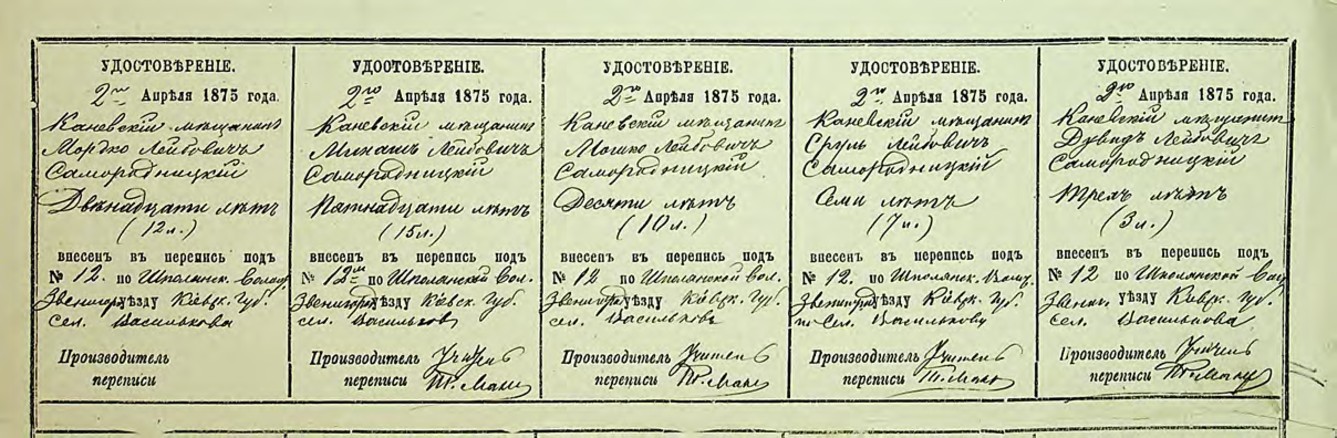 УДОСТОВѢРЕНІЕ.
2го Апрѣля 1875 года.
Каневскій мѣщанинъ
Мордко Лейбовичъ
Самородницкій
Двѣнадцати лѣтъ
(12 л.)
внесенъ въ перепись подъ
№ 12. по Шполянск. Волос
Звенигор уѣзду Кіевск. Губ.
Сел. Василькова
Производитель
переписи
УДОСТОВѢРЕНІЕ.
2го Апрѣля 1875 года.
Каневскій мѣщанинъ
Лейбовичъ
Самородницкій
Пятнадцати лѣтъ
(15 л.)
внесенъ въ перепись подъ
№ 12 по Шполянской Вол.
Звенигор уѣзду Кіевск. Губ.
сел. Васильков
Производитель Учитель
переписи
УДОСТОВѢРЕНІЕ.
2го Апрѣля 1875 года.
Каневскій мѣщанинъ
Мошко Лейбовичъ
Самородницкій
Десяти лѣтъ
(10 л.)
внесенъ въ перепись подъ
№ 12 по Шполянской Вол.
Звенигор уѣзду Кіевск. Губ.
сел. Василькова
Производитель Учитель
переписи
УДОСТОВѢРЕНІЕ.
2го Апрѣля 1875 года.
Каневскій мѣщанинъ
Сруль Лейбовичъ
Самородницкій
Семи лѣтъ
(7 л.)
внесенъ въ перепись подъ
№ 12. по Шполянск. Волос
Звенигор уѣзду Кіевск. Губ.
по Сел. Василькову
Производитель Учитель
переписи
УДОСТОВѢРЕНІЕ.
2го Апрѣля 1875 года.
Каневскій мѣщанинъ
Дувидъ Лейбовичъ
Самородницкій
Трехъ лѣтъ
(3 л.)
внесенъ въ перепись подъ
№ 12 по Шполянской
Звениг. уѣзду Кіевск. Губ.
Сел. Василькова
Производитель Учитель
переписи